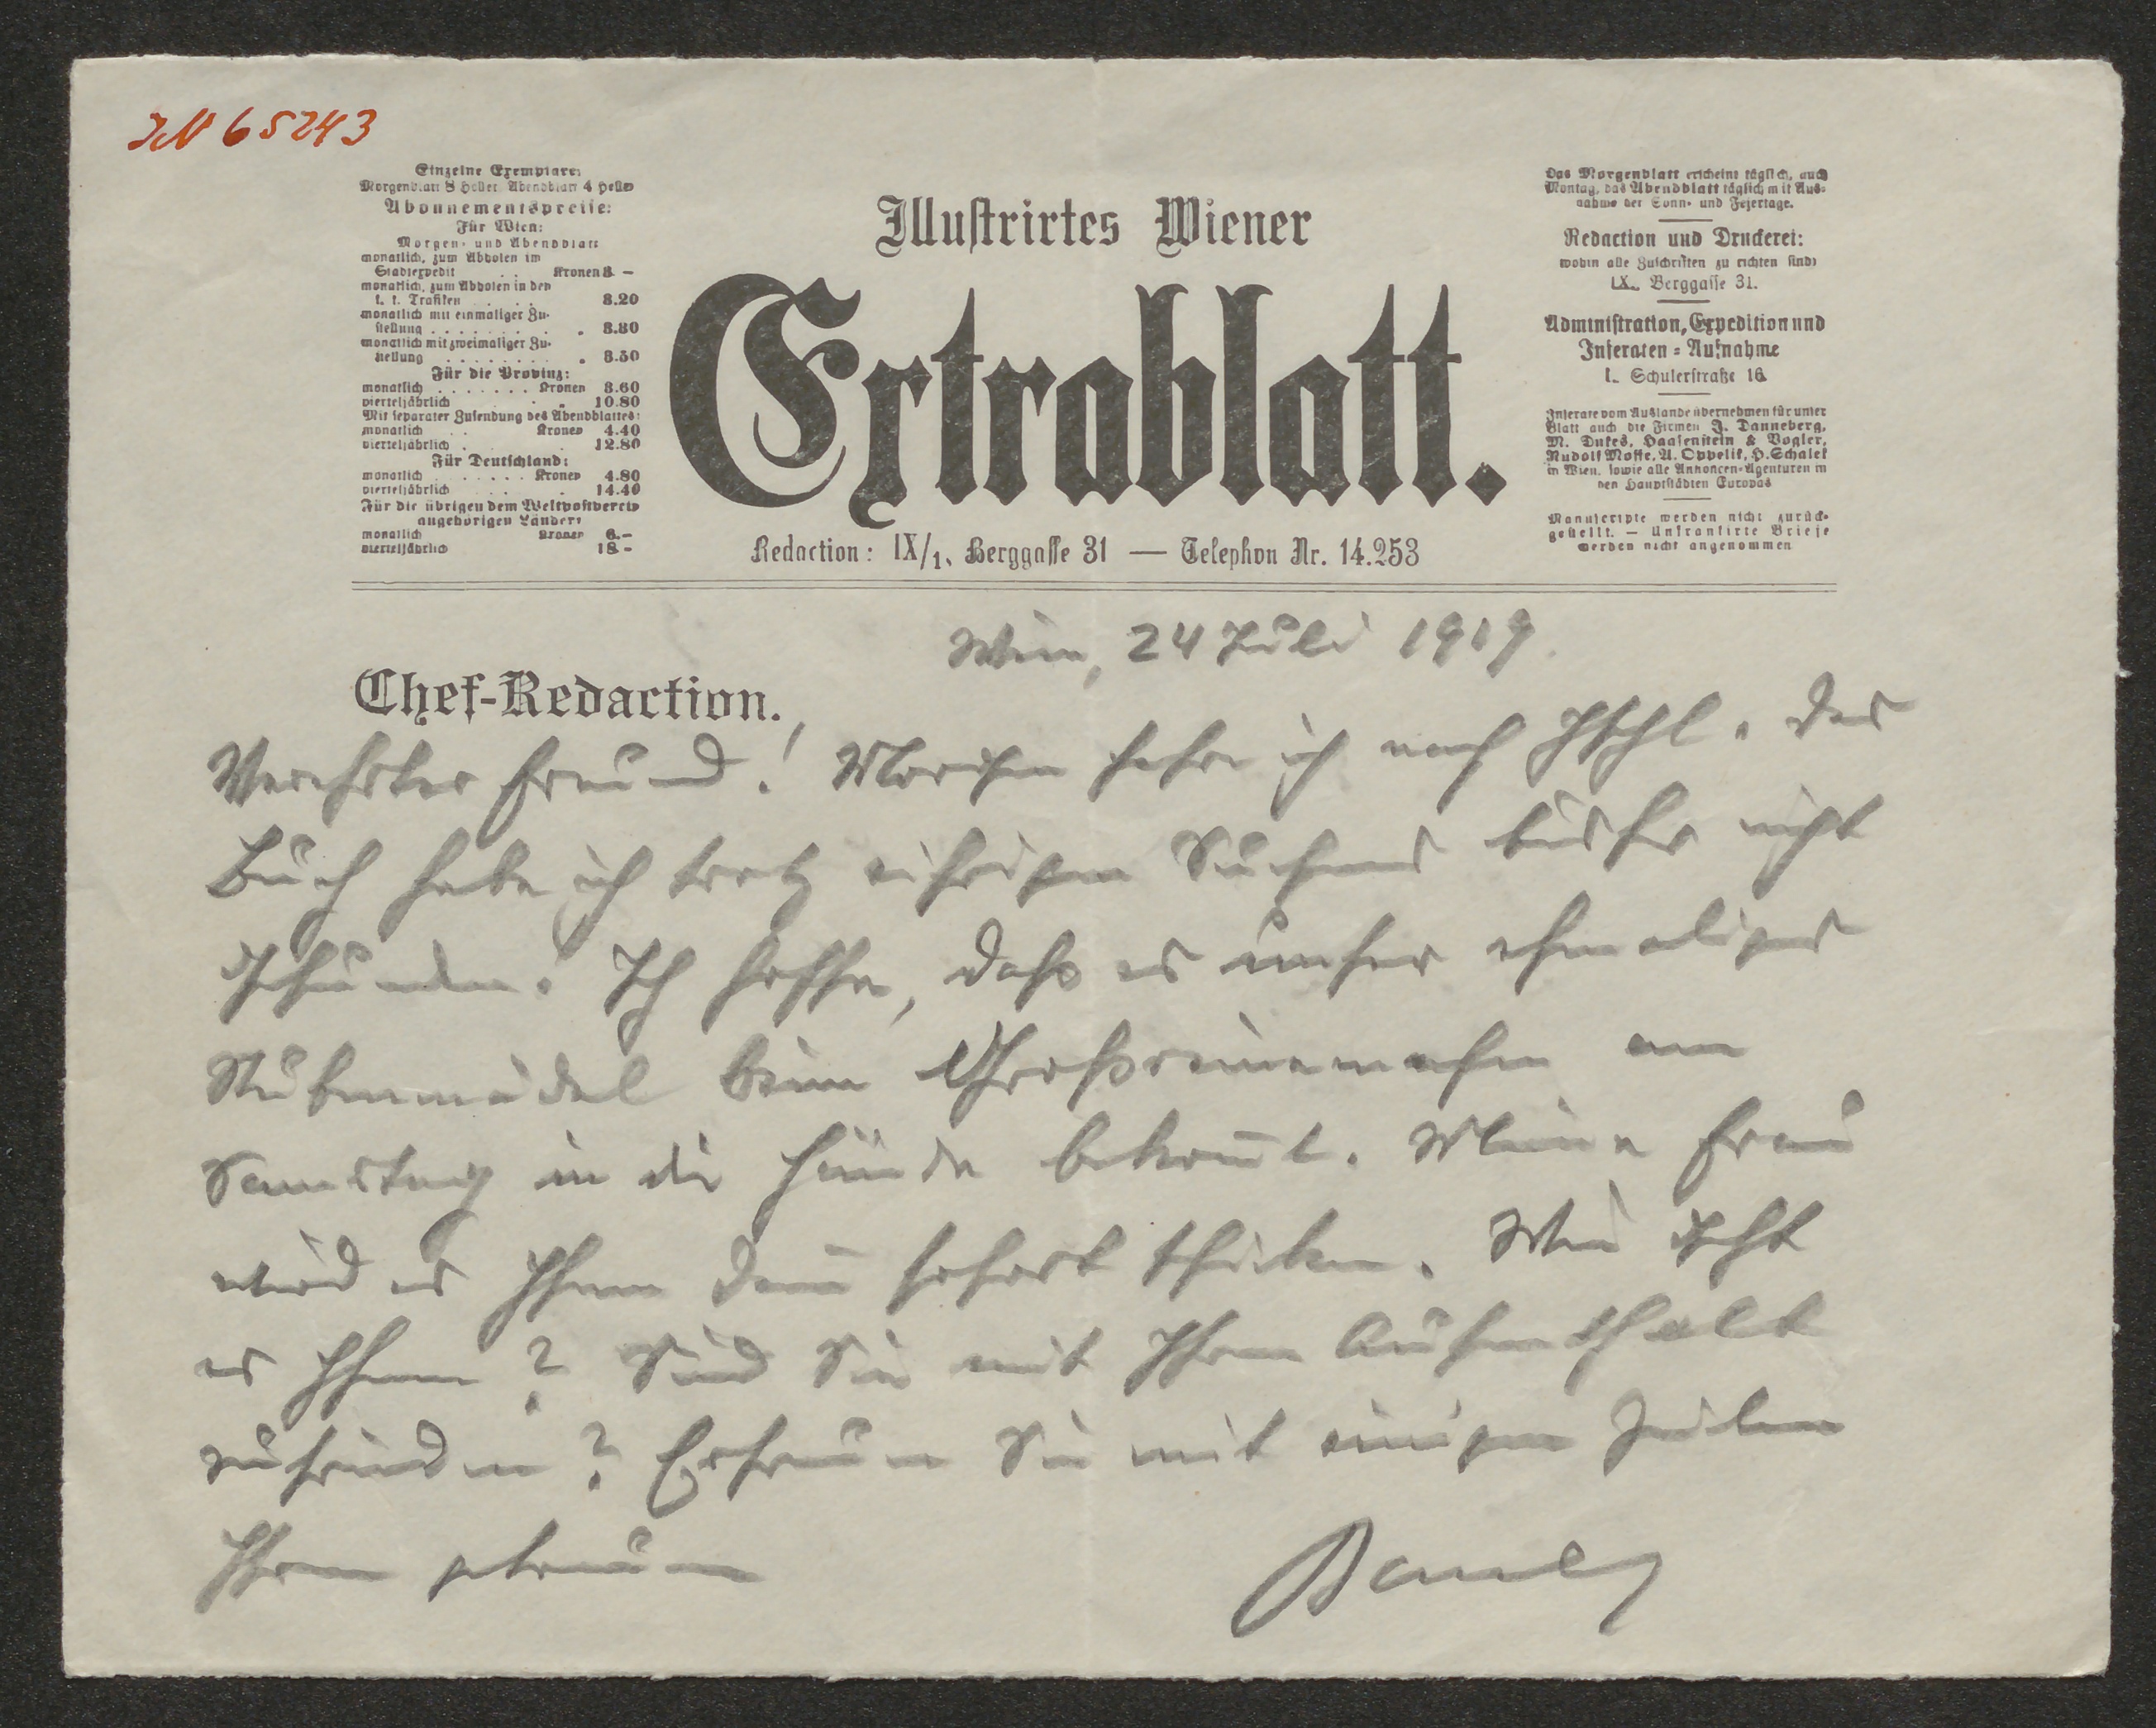 JN 65243
Einzelne Exemplare:
Morgenblatt 8 Heller, Abendblatt 4 Heller
Abonnementspreise:
Für Wien:
Morgen- und Abendblatt
monatlich, zum Abholen im
Stadtexpedit . . Kronen 3.–
monatlich, zum Abholen in den
k. k. Trafiken . . . 3.20
monatlich mit einmaliger Zu-
stellung . . . . . . . . 3.30
monatlich mit zweimaliger Zu-
stellung . . . . . . . . 3.50
Für die Provinz:
monatlich . . . . . . . Kronen 3.60
vierteljährlich . „ 10.80
Mit separater Zusendung des Abendblattes:
monatlich . . Kronen 4.40
vierteljährlich . . . 12.80
Für Deutschland:
monatlich . . . . . . . Kronen 4.80
vierteljährlich . . . . 14.40
Für die übrigen dem Weltpostverein
angehörigen Länder:
monatlich Kronen 6.–
vierteljährlich 18.–
Illustrirtes Wiener
Extrablatt.
Redaction: IX/1, Berggasse 31 — Telephon Nr. 14.253
Das Morgenblatt erscheint täglich, auch
Montag, das Abendblatt täglich mit Aus-
nahme der Sonn- und Feiertage.
Redaction und Druckerei:
wohin alle Zuschriften zu richten sind:
IX., Berggasse 31.
Administration, Expedition und
Inseraten-Aufnahme
I., Schulerstraße 16.
Inserate vom Auslande übernehmen für unser
Blatt auch die Firmen J. Danneberg,
M. Dukes, Haasenstein & Vogler,
Rudolf Mosse, A. Oppelik, H. Schalek
in Wien, sowie alle Annoncen-Agenturen in
den Hauptstädten Europas
Manuscripte werden nicht zurück-
gestellt. — Unfrankirte Briefe
werden nicht angenommen
Wien, 24 Juli 1919.
Chef-Redaction.
Verehrter Freund! Morgen fahre ich nach Ischl. Das
Buch habe ich trotz eifrigen Suchens bisher nicht
gefunden. Ich hoffe, daß es unser ehemaliges
Stubenmädel beim Großreinemachen am
Samstag in die Hände bekom̅t. Meine Frau
wird es Ihnen dan̅ sofort schicken. Wie geht
es Ihnen? Sind Sie mit Ihrem Aufenthalt
zufrieden? Erfreuen Sie mit einigen Zeilen
Ihren getreuen